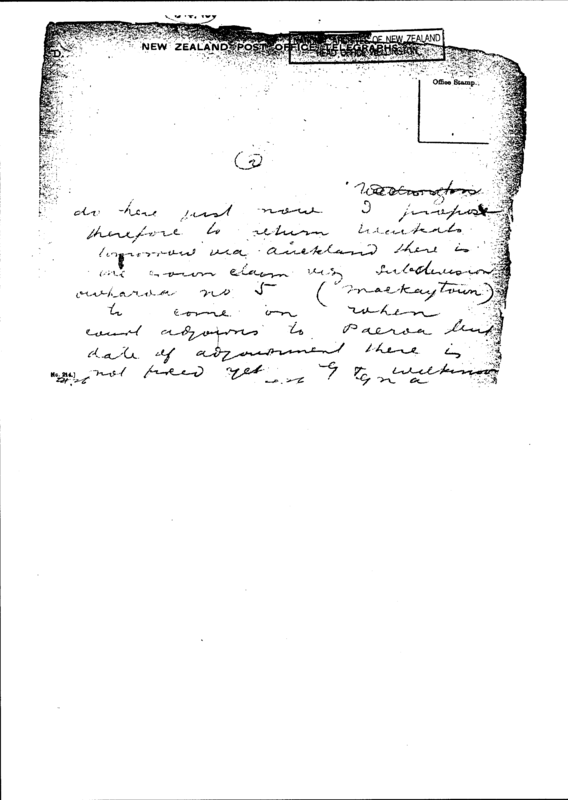 NEW ZEALAND POST OFFICE TELEGRAPHS.
NATIONAL ARCHIVES OF NEW ZEALAND
HEAD OFFICE WELLINGTON
Office Stamp.
(2)
do here just now I propose
therefore to return
tomorrow via auckland there is
one crown claim viz Subdivision
owharoa no 5 (mackaytown)
to come on when
court adjourns to Paeroa but
date of adjournment there is
not fixed yet G Wilkinson